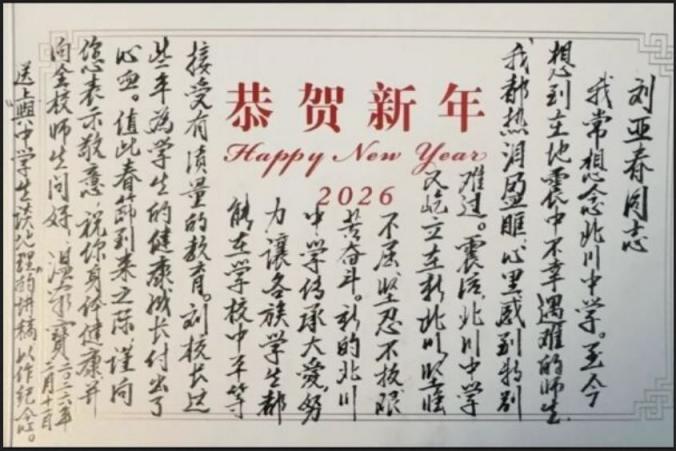 恭贺新年
Happy New Year
2026
刘亚春同志
我常想念北川中学。至今
想到在地震中不幸遇难的师生，
我都热泪盈眶，心里感到特别
难过。震后，北川中学
又屹立在新北川，坚强
不屈，坚忍不拔，艰
苦奋斗。新的北川
中学传承大爱，努
力让各族学生都
能在学校中平等
接受有质量的教育。刘校长这
些年为学生的健康成长付出了
心血。值此春节到来之际，谨向
您表示敬意，祝你身体健康，并
向全校师生问好。温家宝 二〇二六年二月十一日
送上与中学生谈地理的讲稿以作纪念。